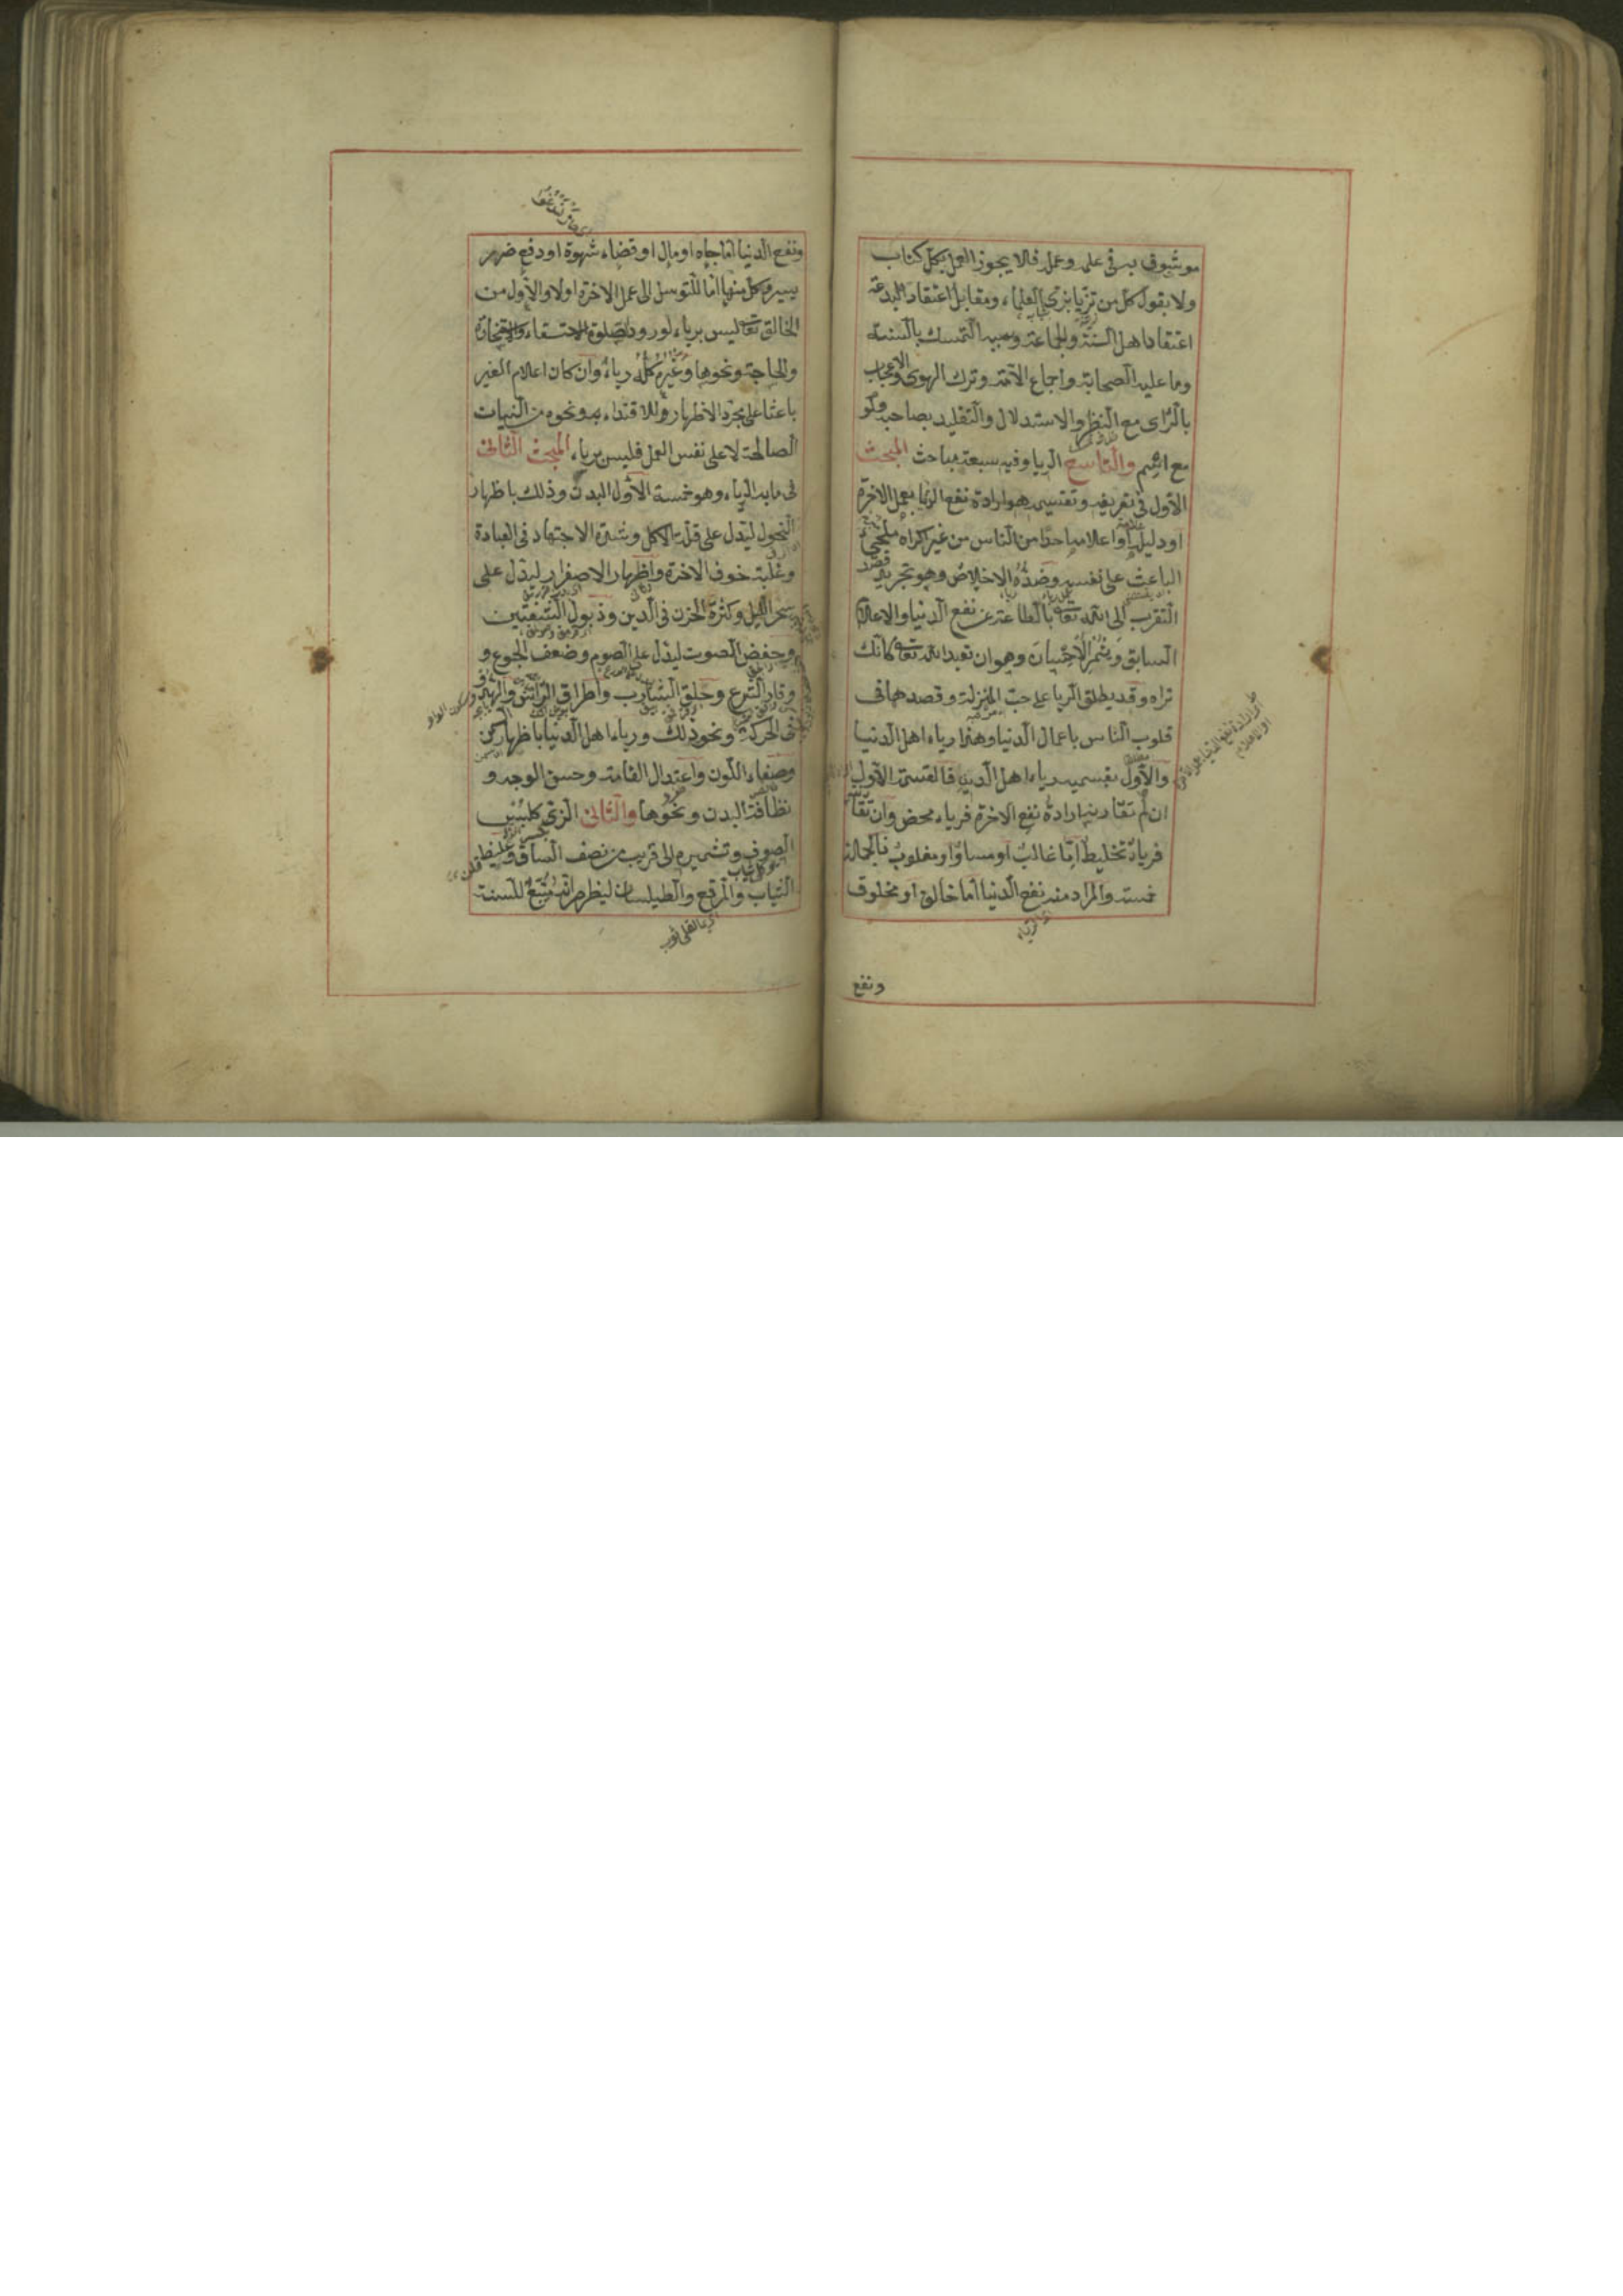 موثوق به في علمه وعمله فلا يجوز العمل بكل كتاب
ولا بقول كل من تزيا بزي العلماء ومقابل اعتقاد البدعة
اعتقاد اهل السنة والجماعة وسببه التمسك بالسنة
وما عليه الصحابة واجماع الامة وترك الهوى والاعجاب
بالرأى مع النظر والاستدلال والتقليد بصاحبه ولو
مع اثم والتاسع الريا وفيه سبعة مباحث المبحث
الاول في تعريفه وتقسيمه هو ارادة نفع الدنيا بعمل الاخرة
او دليله او اعلامه احدا من الناس من غير اكراه ملجئ
الباعث على نفسه وضده الاخلاص وهو تجريد قصد
التقرب الى الله تعالى بالطاعة عن نفع الدنيا والاعلام
السابق ويثمر الاحسان وهو ان تعبد الله تعالى كانك
تراه وقد يطلق الريا على حب المنزلة وقصدها في
قلوب الناس باعمال الدنيا وهذا رياء اهل الدنيا
والاول بقسميه رياء اهل الدين فالقسم الاول
ان لم تقارنه ارادة نفع الاخرة فرياء محض وان تقا
فرياء تخليط اما غالب او مساو او مغلوب فالجملة
خمسة والمراد منه نفع الدنيا اما خالق او مخلوق
ونفع
ونفع الدنيا اما جاه او مال او قضاء شهوة او دفع ضرر
يسير وكل منها اما للتوسل الى عمل الاخرة او لا والاول من
الخالق تعالى ليس برياء لورود صلوة الاستسقاء والاستخارة
والحاجة ونحوها وغيره كله رياء وان كان اعلام الغير
باعثا على مجرد الاظهار وللاقتداء به ونحوه من النيات
الصالحة لا على نفس العمل فليس برياء المبحث الثانى
فى ما به الرياء وهو خمسة الاول البدن وذلك باظهار
النحول ليدل على قلة الاكل وشدة الاجتهاد فى العبادة
وغلبة خوف الاخرة واظهار الاصفرار ليدل على
سهر الليل وكثرة الحزن فى الدين وذبول الشفتين
وخفض الصوت ليدل على الصوم وضعف الجوع و
وقار الشرع وحلق الشارب واطراق الرأس والهدو
فى الحركة ونحو ذلك ورياء اهل الدنيا باظهار السمن
وصفاء اللون واعتدال القامة وحسن الوجه و
نظافة البدن ونحوها والثانى الزي كلبس
الصوف وتشميره الى قريب من نصف الساق وغليظ
الثياب والمرقع والطيلسان ليظهر انه متبع للسنة